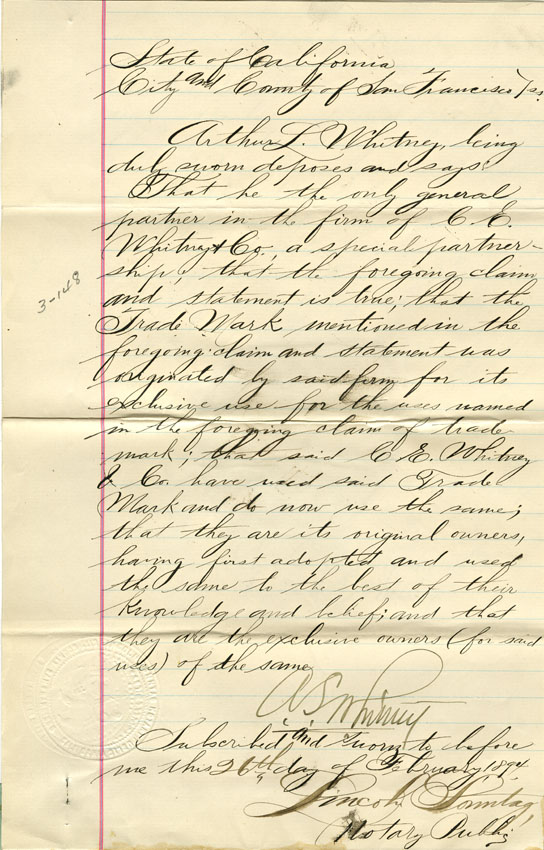 State of California,
City and County of San Francisco / ss.
Arthur L. Whitney, being
duly sworn deposes and says:
That he the only general
partner in the firm of C. E.
Whitney & Co., a special partner-
ship; that the foregoing claim
3-148
and statement is true; that the
Trade Mark mentioned in the
foregoing claim and statement was
originated by said firm for its
exclusive use for the uses named
in the foregoing claim of trade
mark; that said C. E. Whitney
& Co. have used said Trade
Mark and do now use the same;
that they are its original owners,
having first adopted and used
the same to the best of their
knowledge and belief; and that
they are the exclusive owners (for said
uses) of the same.
A L Whitney
Subscribed and sworn to before
me this 26th day of February 1894.
Lincoln Sonntag,
Notary Public